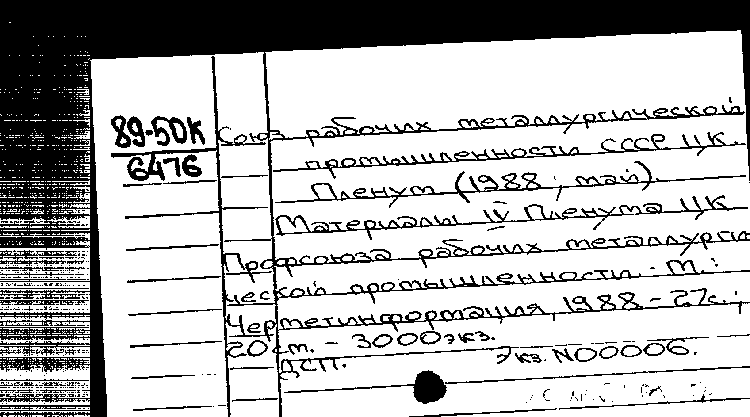 89-50К
6476
Союз рабочих металлургической
промышленности СССР ЦК.
Пленум (1988; май).
Материалы IV Пленума ЦК
Профсоюза рабочих металлурги
ческой промышленности. - М.:
Черметинформация, 1988 - 27с.;
20 см. - 3000экз.
ДСП. Экз. N00006.